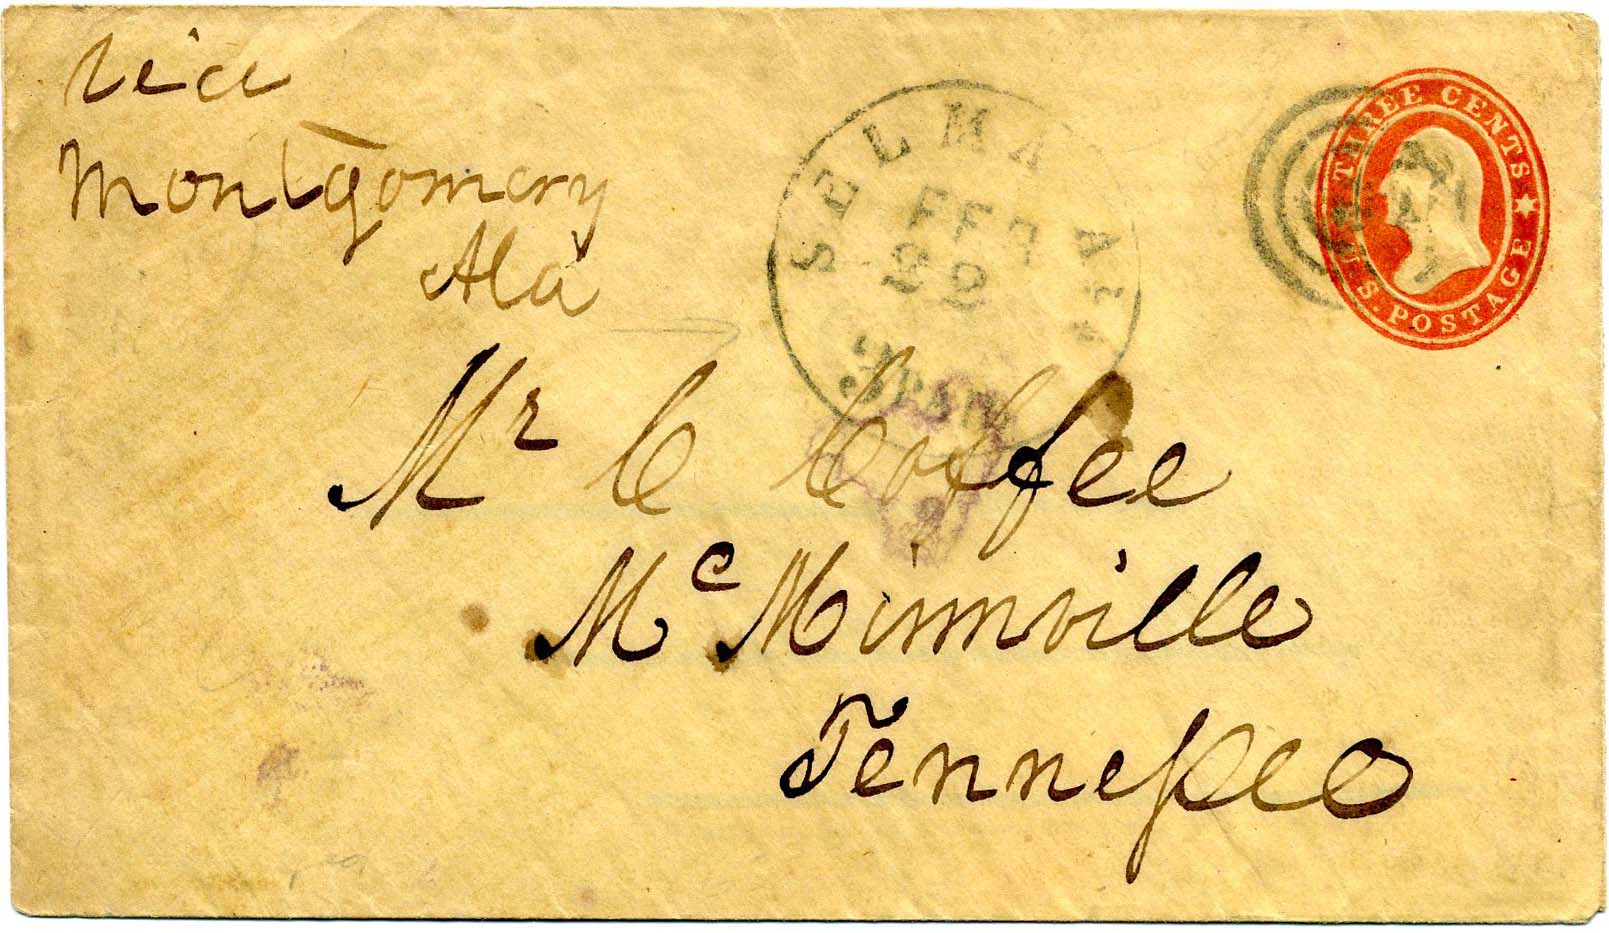 via
Montgomery
Ala
SELMA ALA
FEB
22
THREE CENTS
U.S. POSTAGE
Mr C Coffee
McMinnville
Tennessee